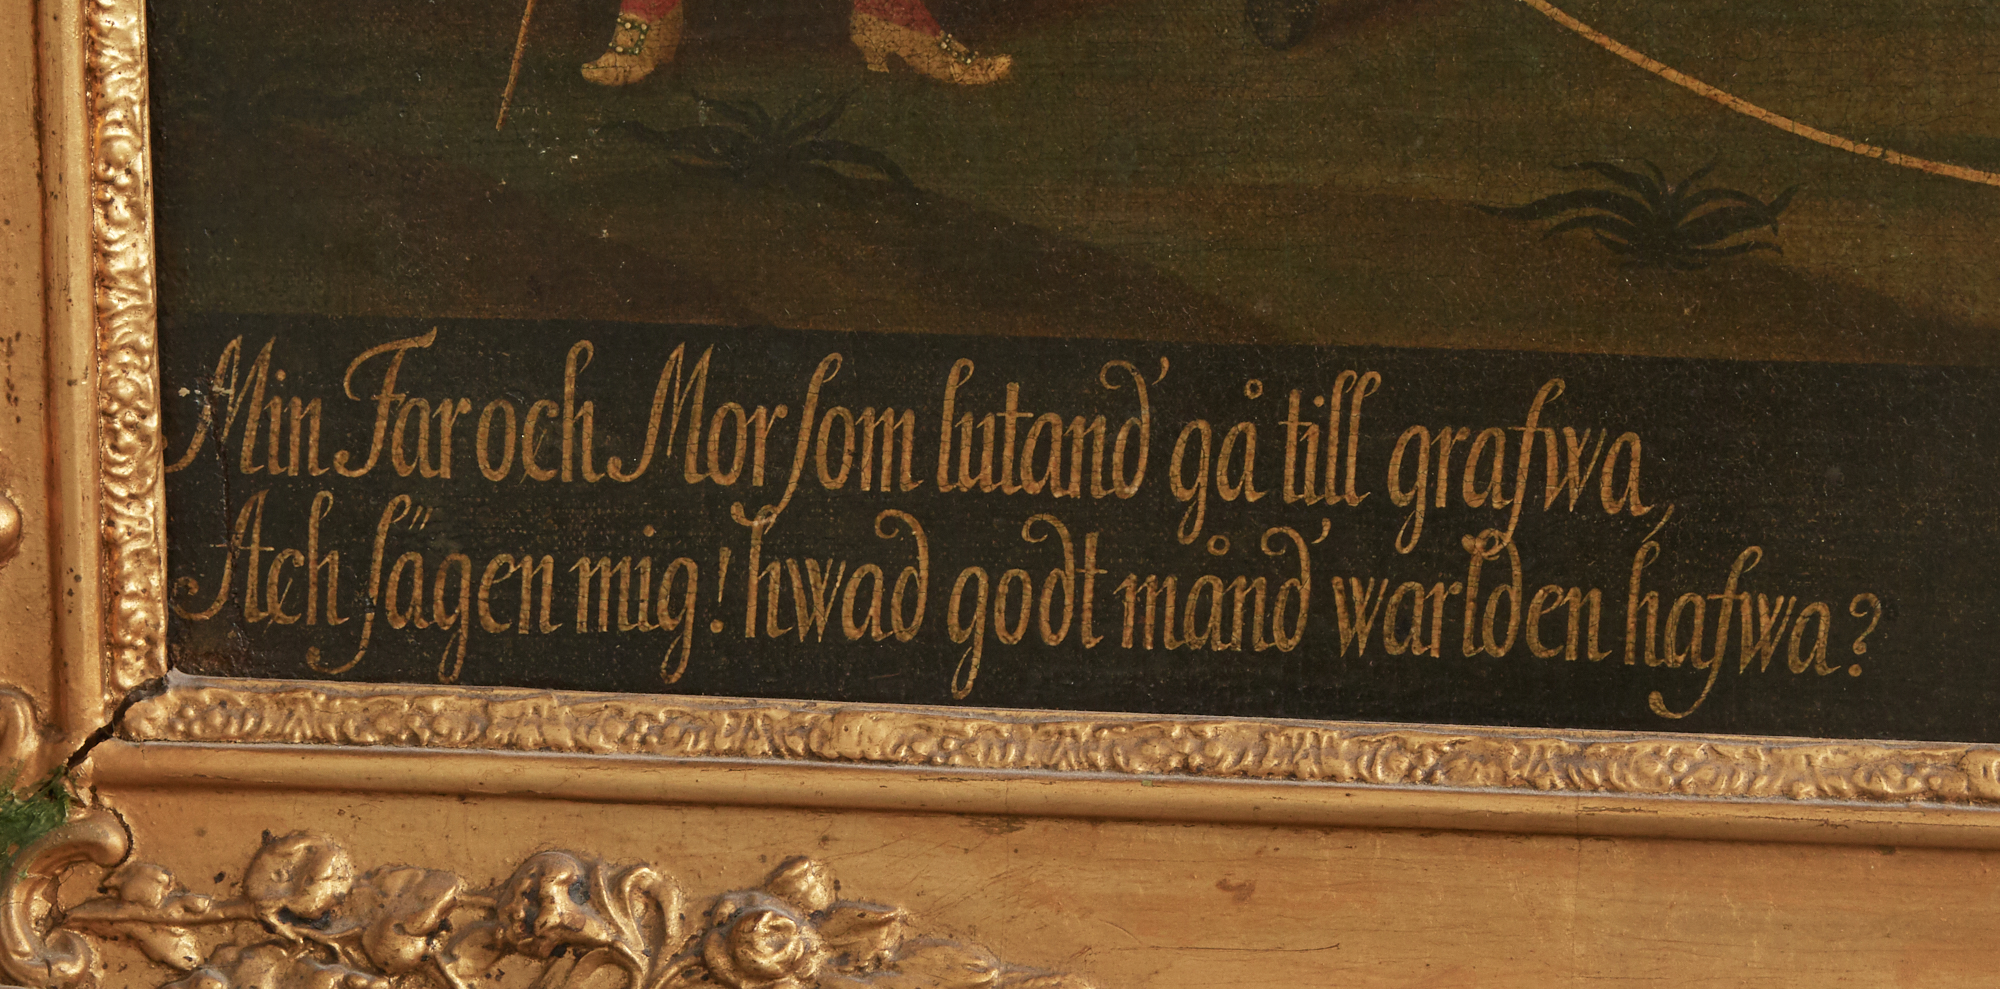 Min Far och Mor som lutand' gå till grafwa,
Ach sägen mig! hwad godt månd' warlden hafwa?